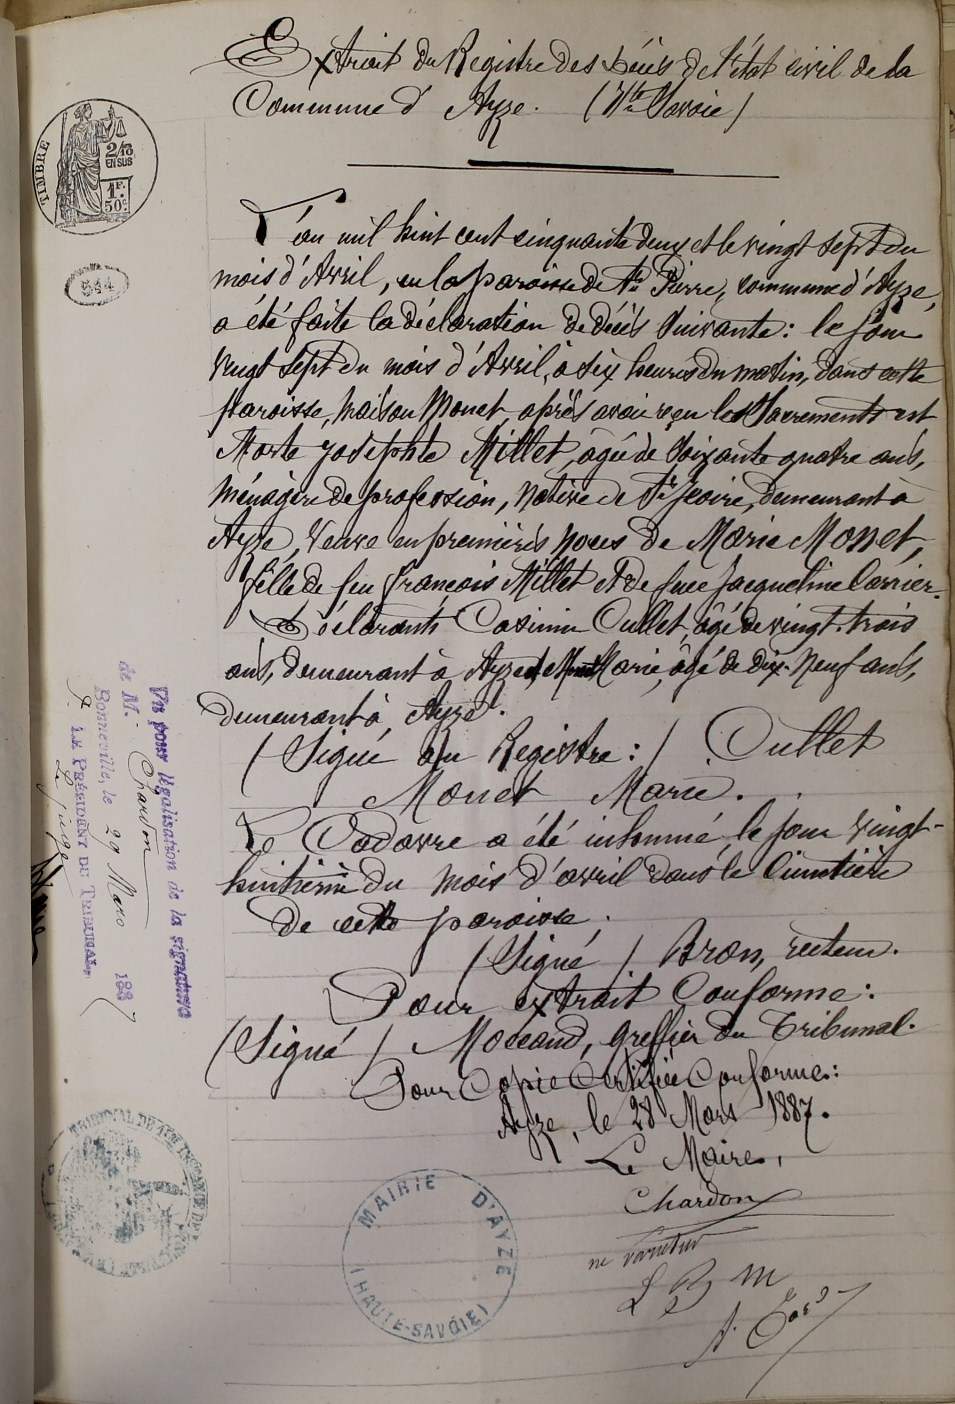 Extrait du Registre des décès de l'état civil de la
Commune d'Ayze. (Hte Savoie)
TIMBRE
2/10
EN SUS
1F.
50c
544
L'an mil huit cent cinquante deux et le vingt sept du
mois d'Avril, en la paroisse de St Pierre, commune d'Ayze,
a été faite la déclaration de décès suivante: le jour
vingt sept du mois d'Avril, à six heures du matin, dans cette
paroisse, maison Monet, après avoir reçu les Sacrements est
Morte Josephte Millet, âgée de soixante quatre ans,
ménagère de profession, native de St Jeoire, demeurant à
Ayze, veuve en premières noces de Marie Monet,
fille de feu François Millet et de feue Jacqueline Carrier.
Déclarants Casimir Cullet, âgé de vingt-trois
ans, demeurant à Ayze et Monet Marie, âgé de dix-neuf ans,
demeurant à Ayze.
(Signé au Registre:) Cullet
Monet Marie.
Le Cadavre a été inhumé le jour vingt-
huitième du mois d'avril dans le Cimetière
de cette paroisse.
(Signé) Bron, recteur.
Pour extrait Conforme:
(Signé) Moccand, greffier du Tribunal.
Pour Copie Certifiée Conforme:
Ayze, le 28 Mars 1887.
Le Maire,
Chardon
ne varietur
L B M
Vu pour légalisation de la signature
de M. Chardon
Bonneville, le 29 Mars 1887
LE PRÉSIDENT DU TRIBUNAL,
Le juge
MAIRIE D'AYZE
(HAUTE-SAVOIE)